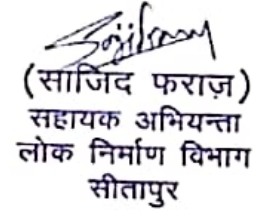 (साजिद फराज़)
सहायक अभियन्ता
लोक निर्माण विभाग
सीतापुर